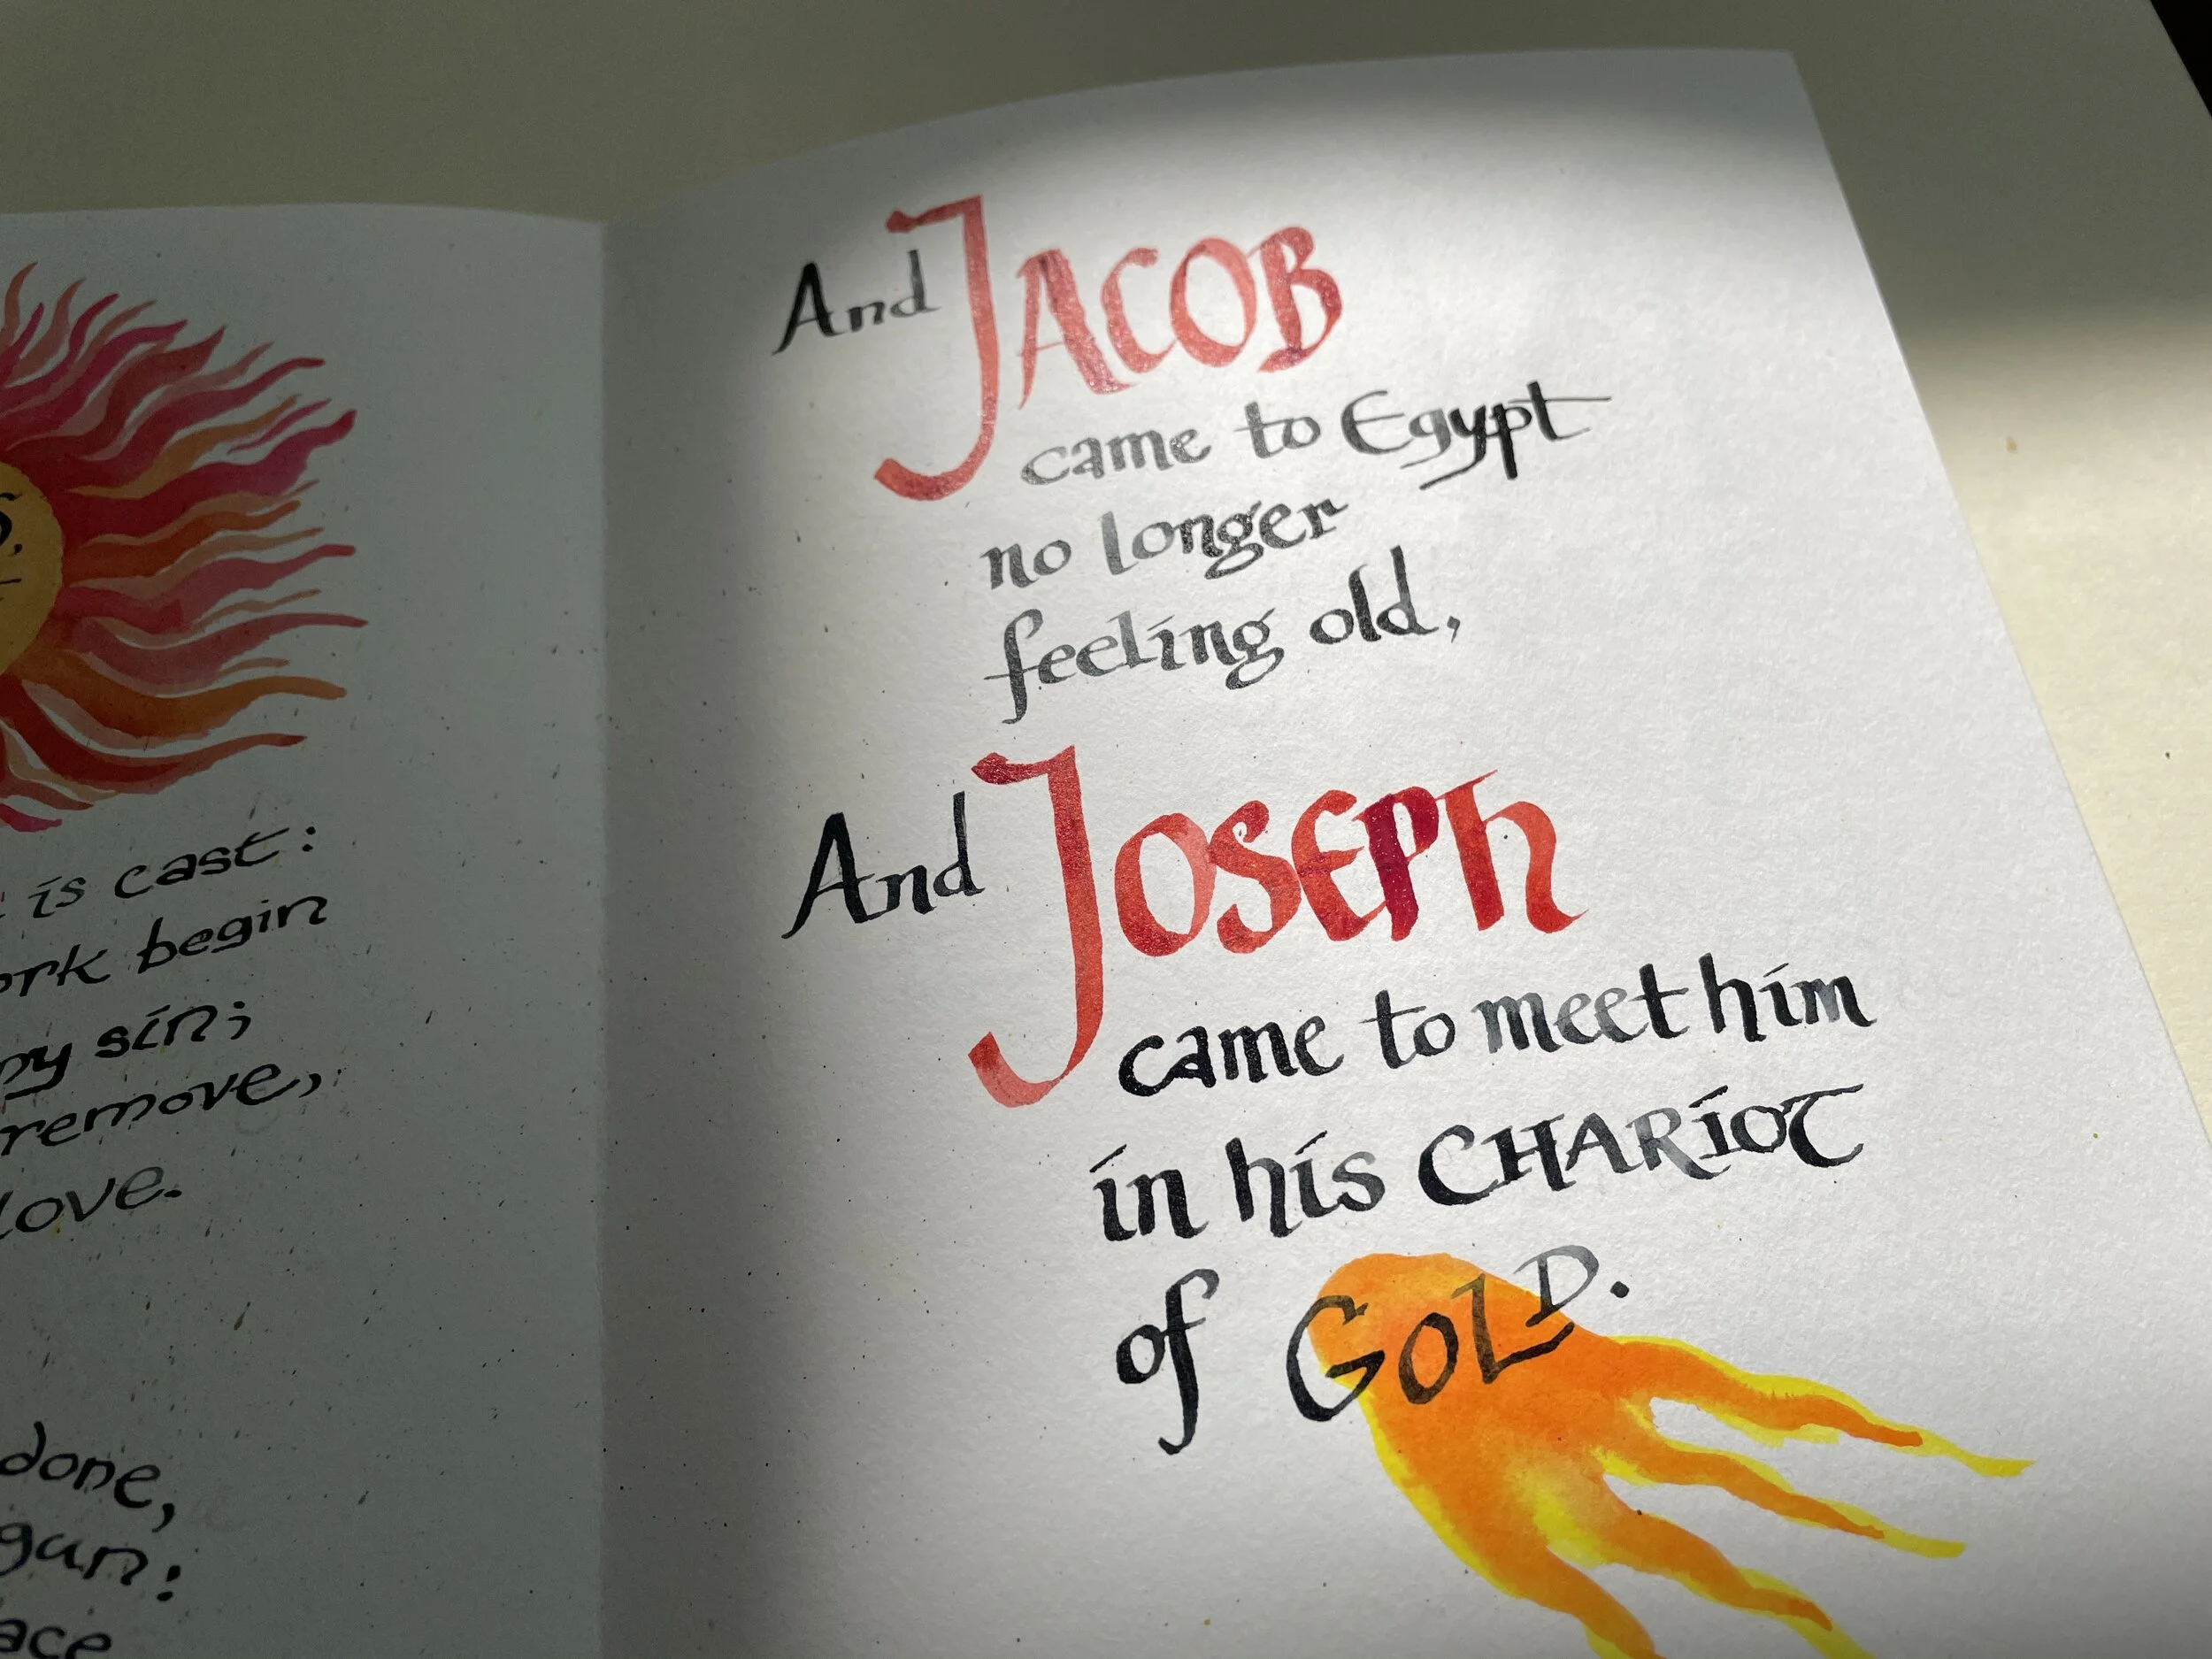 is cast:
begin
sin;
remove,
love.
done,
And JACOB
came to Egypt
no longer
feeling old,
And JOSEPh
came to meet him
in his CHARiOT
of GOLD.